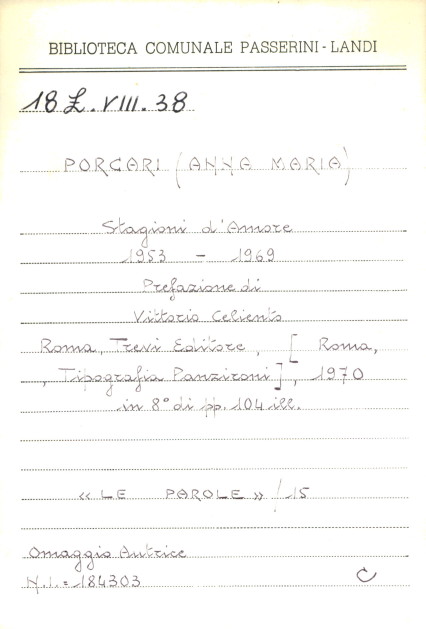 BIBLIOTECA COMUNALE PASSERINI - LANDI
18 L. VIII. 38
PORCARI (ANNA MARIA)
Stagioni d'Amore
1953 - 1969
Prefazione di
VittorioCeliento
Roma, Trevi Editore, [ Roma,
, Tipografia Panzironi ], 1970
in 8° di pp. 104 ill.
« LE PAROLE » / 15
Omaggio Autrice
N.I. = 184303
C